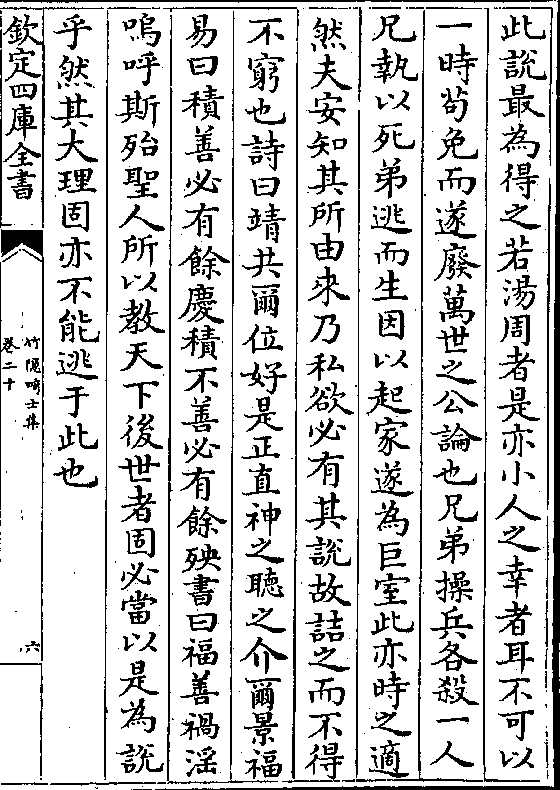 此説最為得之若湯周者是亦小人之幸者耳不可以
一時茍免而遂廢萬世之公論也兄弟操兵各殺一人
兄執以死弟逃而生因以起家遂為巨室此亦時之適
然夫安知其所由來乃私欲必有其説故詰之而不得
不窮也詩曰靖共爾位好是正直神之聽之介爾景福
易曰積善必有餘慶積不善必有餘殃書曰福善禍淫
嗚呼斯殆聖人所以教天下後世者固必當以是為説
乎然其大理固亦不能逃于此也
欽定四庫全書
竹隠畸士集
卷二十
六